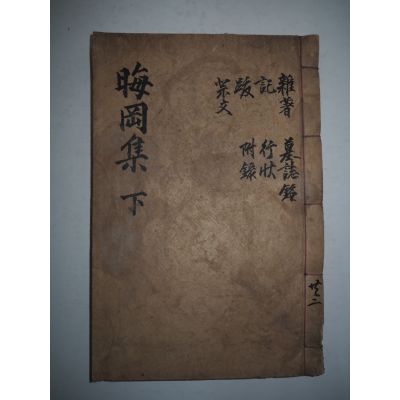 晦岡集 下
雜著 墓誌銘
記 行狀
跋 附錄
祭文
共二